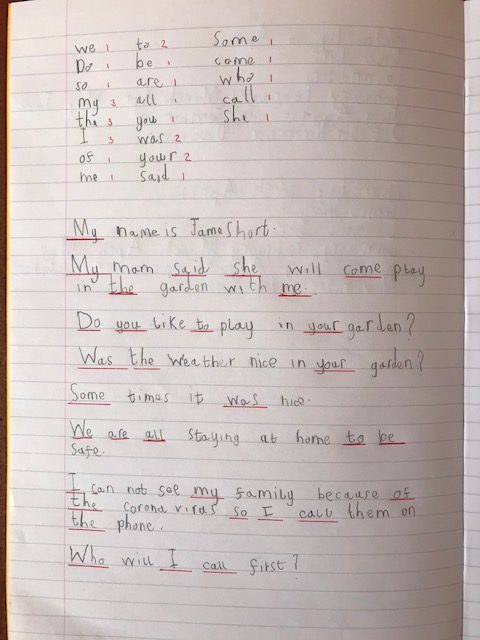 we 1 to 2 Some 1
Do 1 be 1 come 1
so 1 are 1 who 1
my 3 all 1 call 1
the 3 you 1 She 1
I 3 was 2
of 1 your 2
me 1 said 1
My name is Jame Short.
My mam said she will come play
in the garden with me.
Do you like to play in your garden?
Was the weather nice in your garden?
Some times it was nice.
We are all staying at home to be
safe.
I can not see my family because of
the corona virus so I call them on
the phone.
Who will I call first?